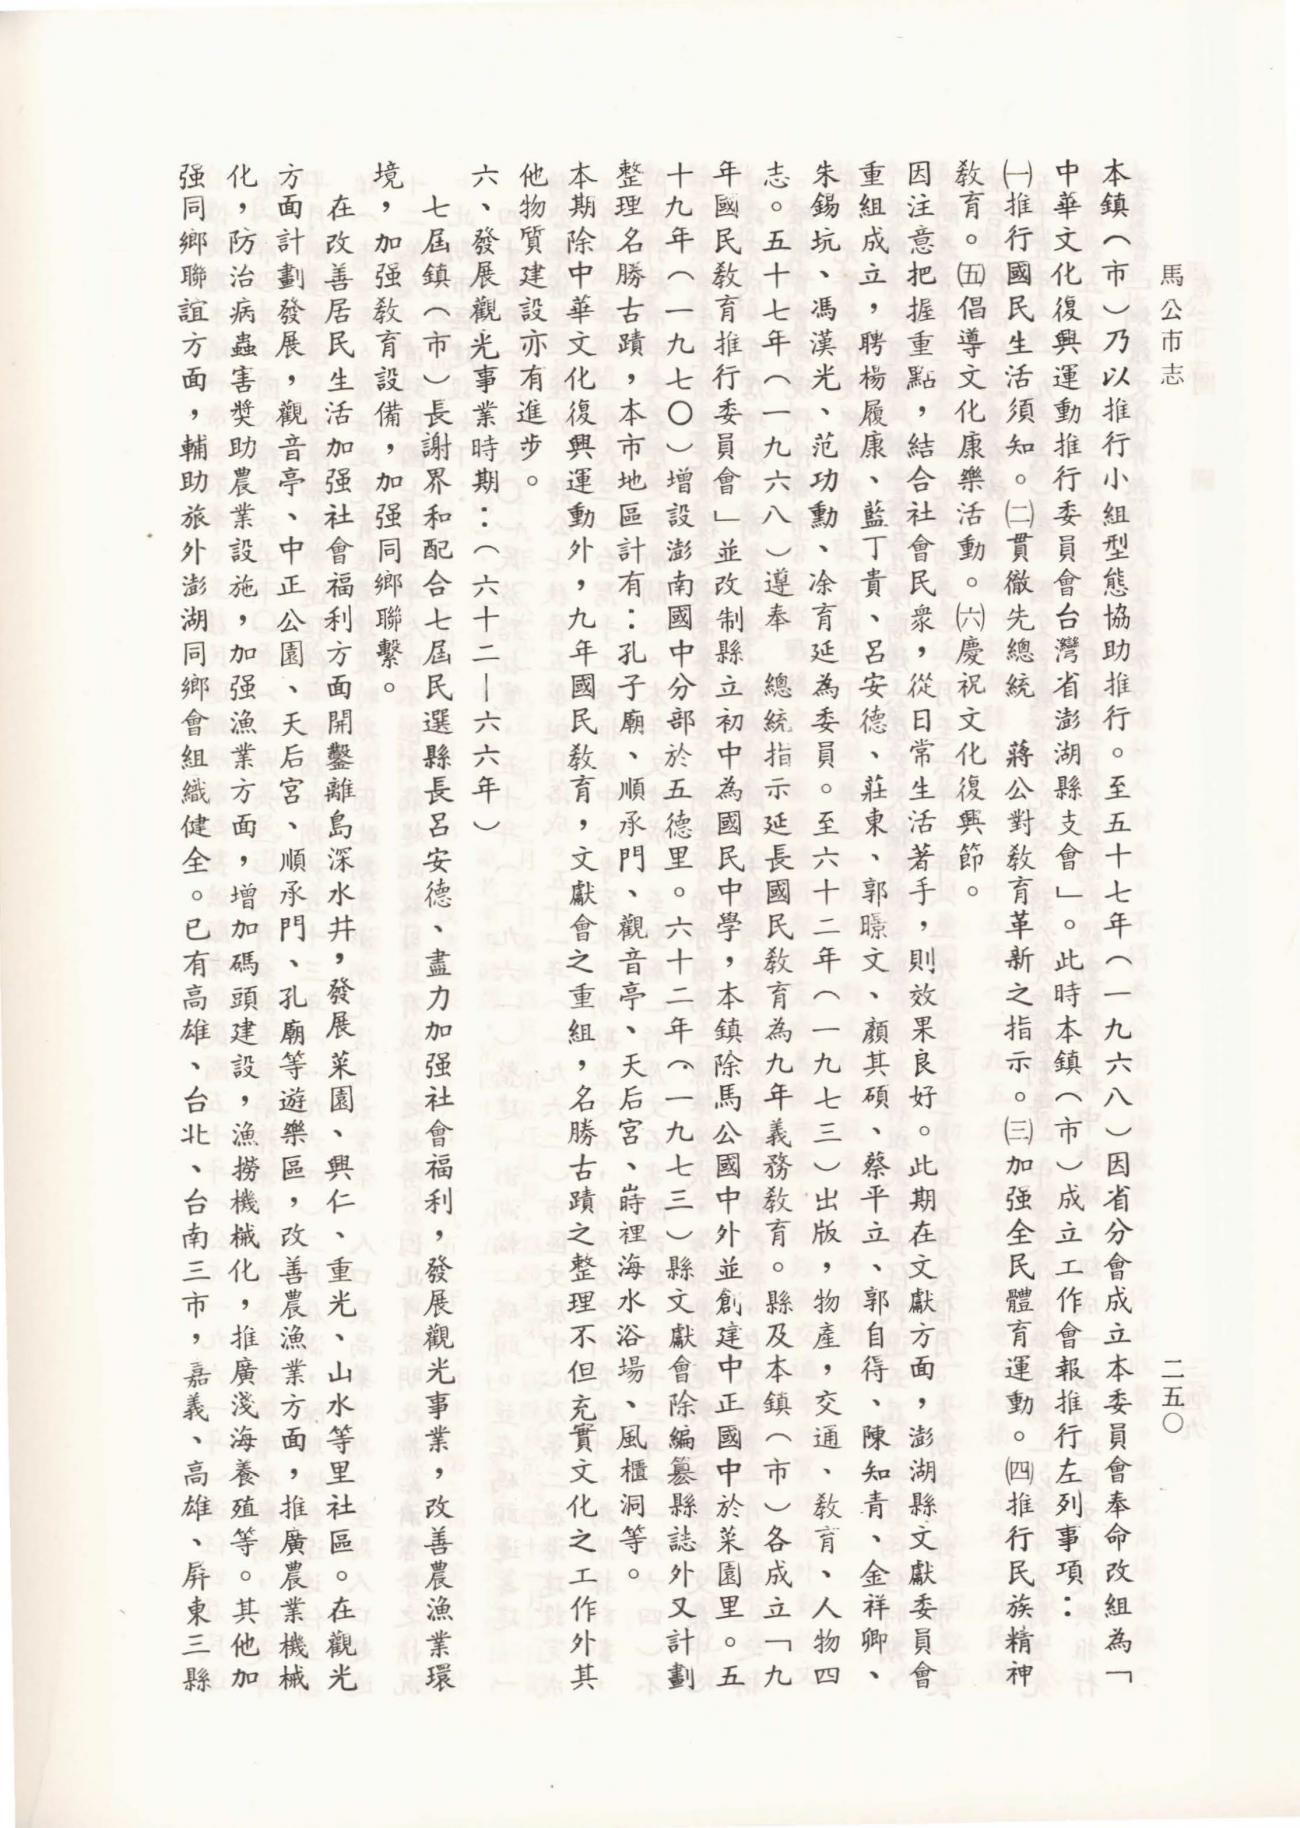 馬公市志
二五〇
本鎮（市）乃以推行小組型態協助推行。至五十七年（一九六八）因省分會成立本委員會奉命改組為「
中華文化復興運動推行委員會台灣省澎湖縣支會」。此時本鎮（市）成立工作會報推行左列事項：
㈠推行國民生活須知。㈡貫徹先總統　蔣公對教育革新之指示。㈢加强全民體育運動。㈣推行民族精神
教育。㈤倡導文化康樂活動。㈥慶祝文化復興節。
因注意把握重點，結合社會民衆，從日常生活著手，則效果良好。此期在文獻方面，澎湖縣文獻委員會
重組成立，聘楊履康、藍丁貴、呂安德、莊東、郭暻文、顏其碩、蔡平立、郭自得、陳知青、金祥卿、
朱錫坑、馮漢光、范功勳、凃育延為委員。至六十二年（一九七三）出版，物產，交通、教育、人物四
志。五十七年（一九六八）遵奉　總統指示延長國民教育為九年義務教育。縣及本鎮（市）各成立「九
年國民教育推行委員會」並改制縣立初中為國民中學，本鎮除馬公國中外並創建中正國中於菜園里。五
十九年（一九七〇）增設澎南國中分部於五德里。六十二年（一九七三）縣文獻會除編篡縣誌外又計劃
整理名勝古蹟，本市地區計有：孔子廟、順承門、觀音亭、天后宮、嵵裡海水浴場、風櫃洞等。
本期除中華文化復興運動外，九年國民教育，文獻會之重組，名勝古蹟之整理不但充實文化之工作外其
他物質建設亦有進步。
六、發展觀光事業時期：（六十二—六六年）
七屆鎮（市）長謝界和配合七屆民選縣長呂安德、盡力加强社會福利，發展觀光事業，改善農漁業環
境，加强教育設備，加强同鄉聯繫。
在改善居民生活加强社會福利方面開鑿離島深水井，發展菜園、興仁、重光、山水等里社區。在觀光
方面計劃發展，觀音亭、中正公園、天后宮、順承門、孔廟等遊樂區，改善農漁業方面，推廣農業機械
化，防治病蟲害獎助農業設施，加强漁業方面，增加碼頭建設，漁撈機械化，推廣淺海養殖等。其他加
强同鄉聯誼方面，輔助旅外澎湖同鄉會組織健全。已有高雄、台北、台南三市，嘉義、高雄、屏東三縣